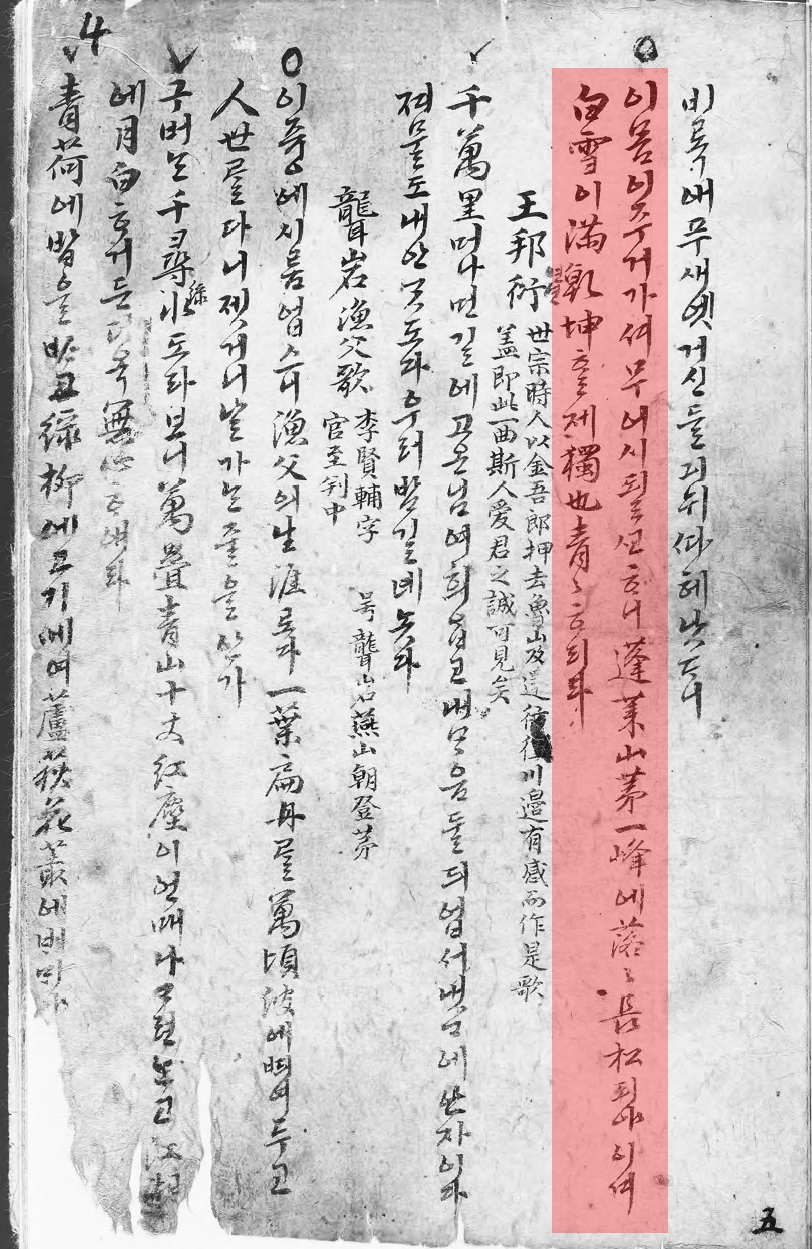 비록애 푸새엣 거신들 긔 뉘 따헤 낫드니
이 몸이 주거 가셔 무어시 될고 ᄒᆞ니 蓬萊山 第一峰에 落〻長松 되야 이셔
白雪이 滿乾坤ᄒᆞᆯ 제 獨也靑〻ᄒᆞ리라
王邦衍
世宗時人以金吾郞押去魯山及還 川邊有感而作是歌
盖卽此一曲斯人愛君之誠可見矣
千萬里 머나먼 길에 고은 님 여희ᄋᆞᆸ고 내 ᄆᆞ음 둘 듸 업서 냇ᄀᆞ에 안자이다
져 물도 내 안 ᄀᆞᆺ도다 우러 밤길 녜놋다
聾岩漁父歌
李賢輔字 号聾岩燕山朝登第
官至判中
이 즁에 시름 업스니 漁父의 生涯로다 一葉扁舟를 萬頃波에 ᄯᅴ여 두고
人世를 다 니젯거니 날 가는 줄을 알가
구버는 千尋綠水 도라보니 萬疊靑山 十丈紅塵이 언매나 ᄀᆞ련ᄂᆞᆫ고 江湖
에 月白ᄒᆞ거든 더욱 無心ᄒᆞ애라
靑荷에 밥을 ᄡᆞ고 綠柳에 고기 ᄢᅦ여 蘆荻花叢에 ᄇᆡ ᄆᆡ야
五
4